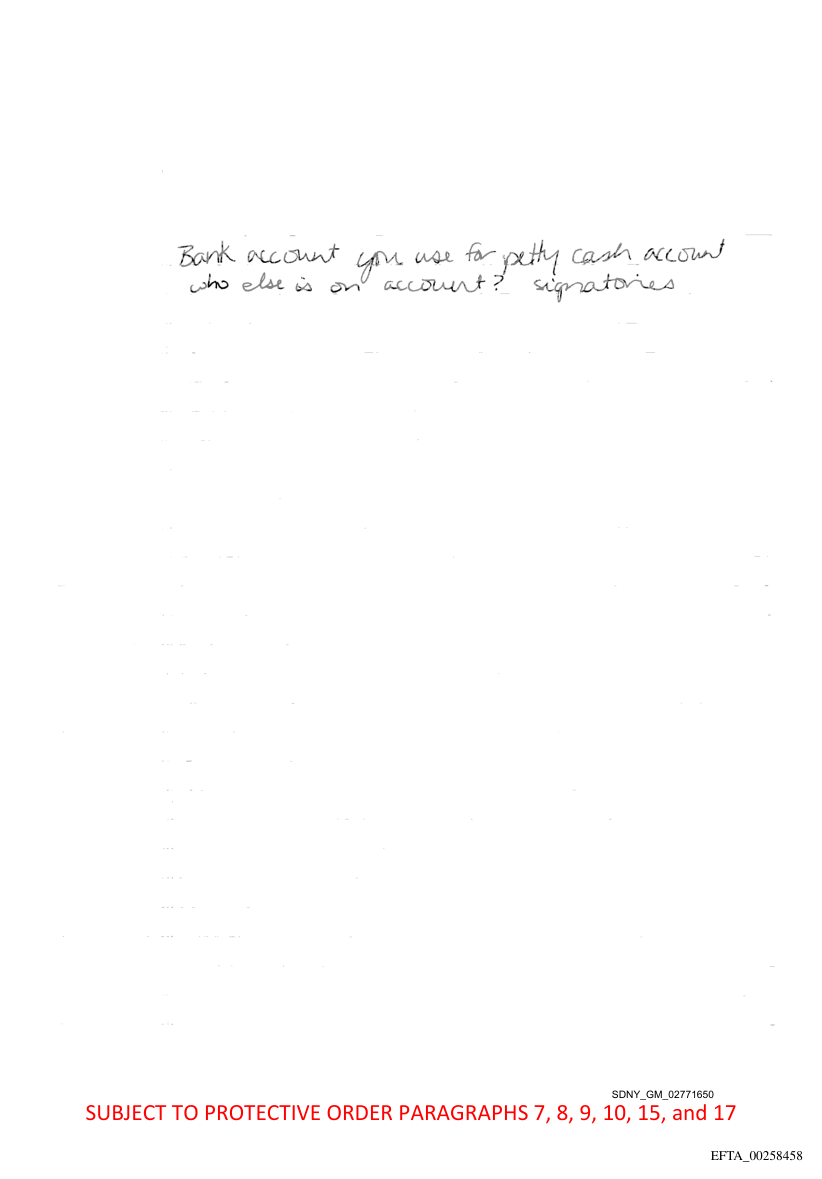 Bank account you use for petty cash account
who else is on account? signatories
SDNY_GM_02771650
SUBJECT TO PROTECTIVE ORDER PARAGRAPHS 7, 8, 9, 10, 15, and 17
EFTA_00258458